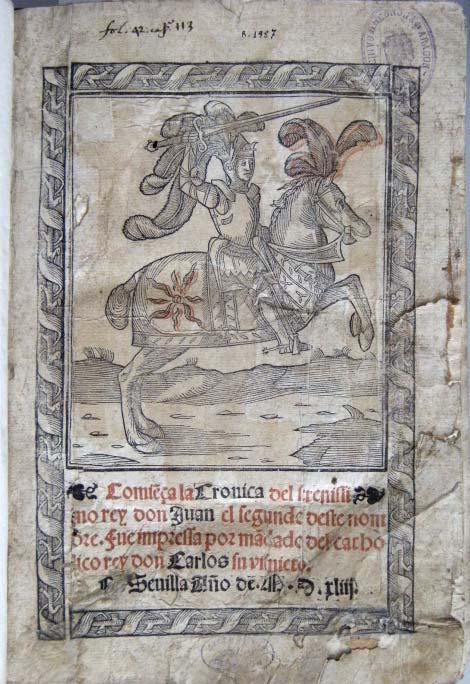 fol. 42. cap. 113
Comiẽça la Cronica del sereniſſi
mo rey don Juan el segundo deste nom
bre. fue impreſſa por mãdado del catho
lico rey don Carlos su viſnieto.
Sevilla Año de. M. D. xliij.